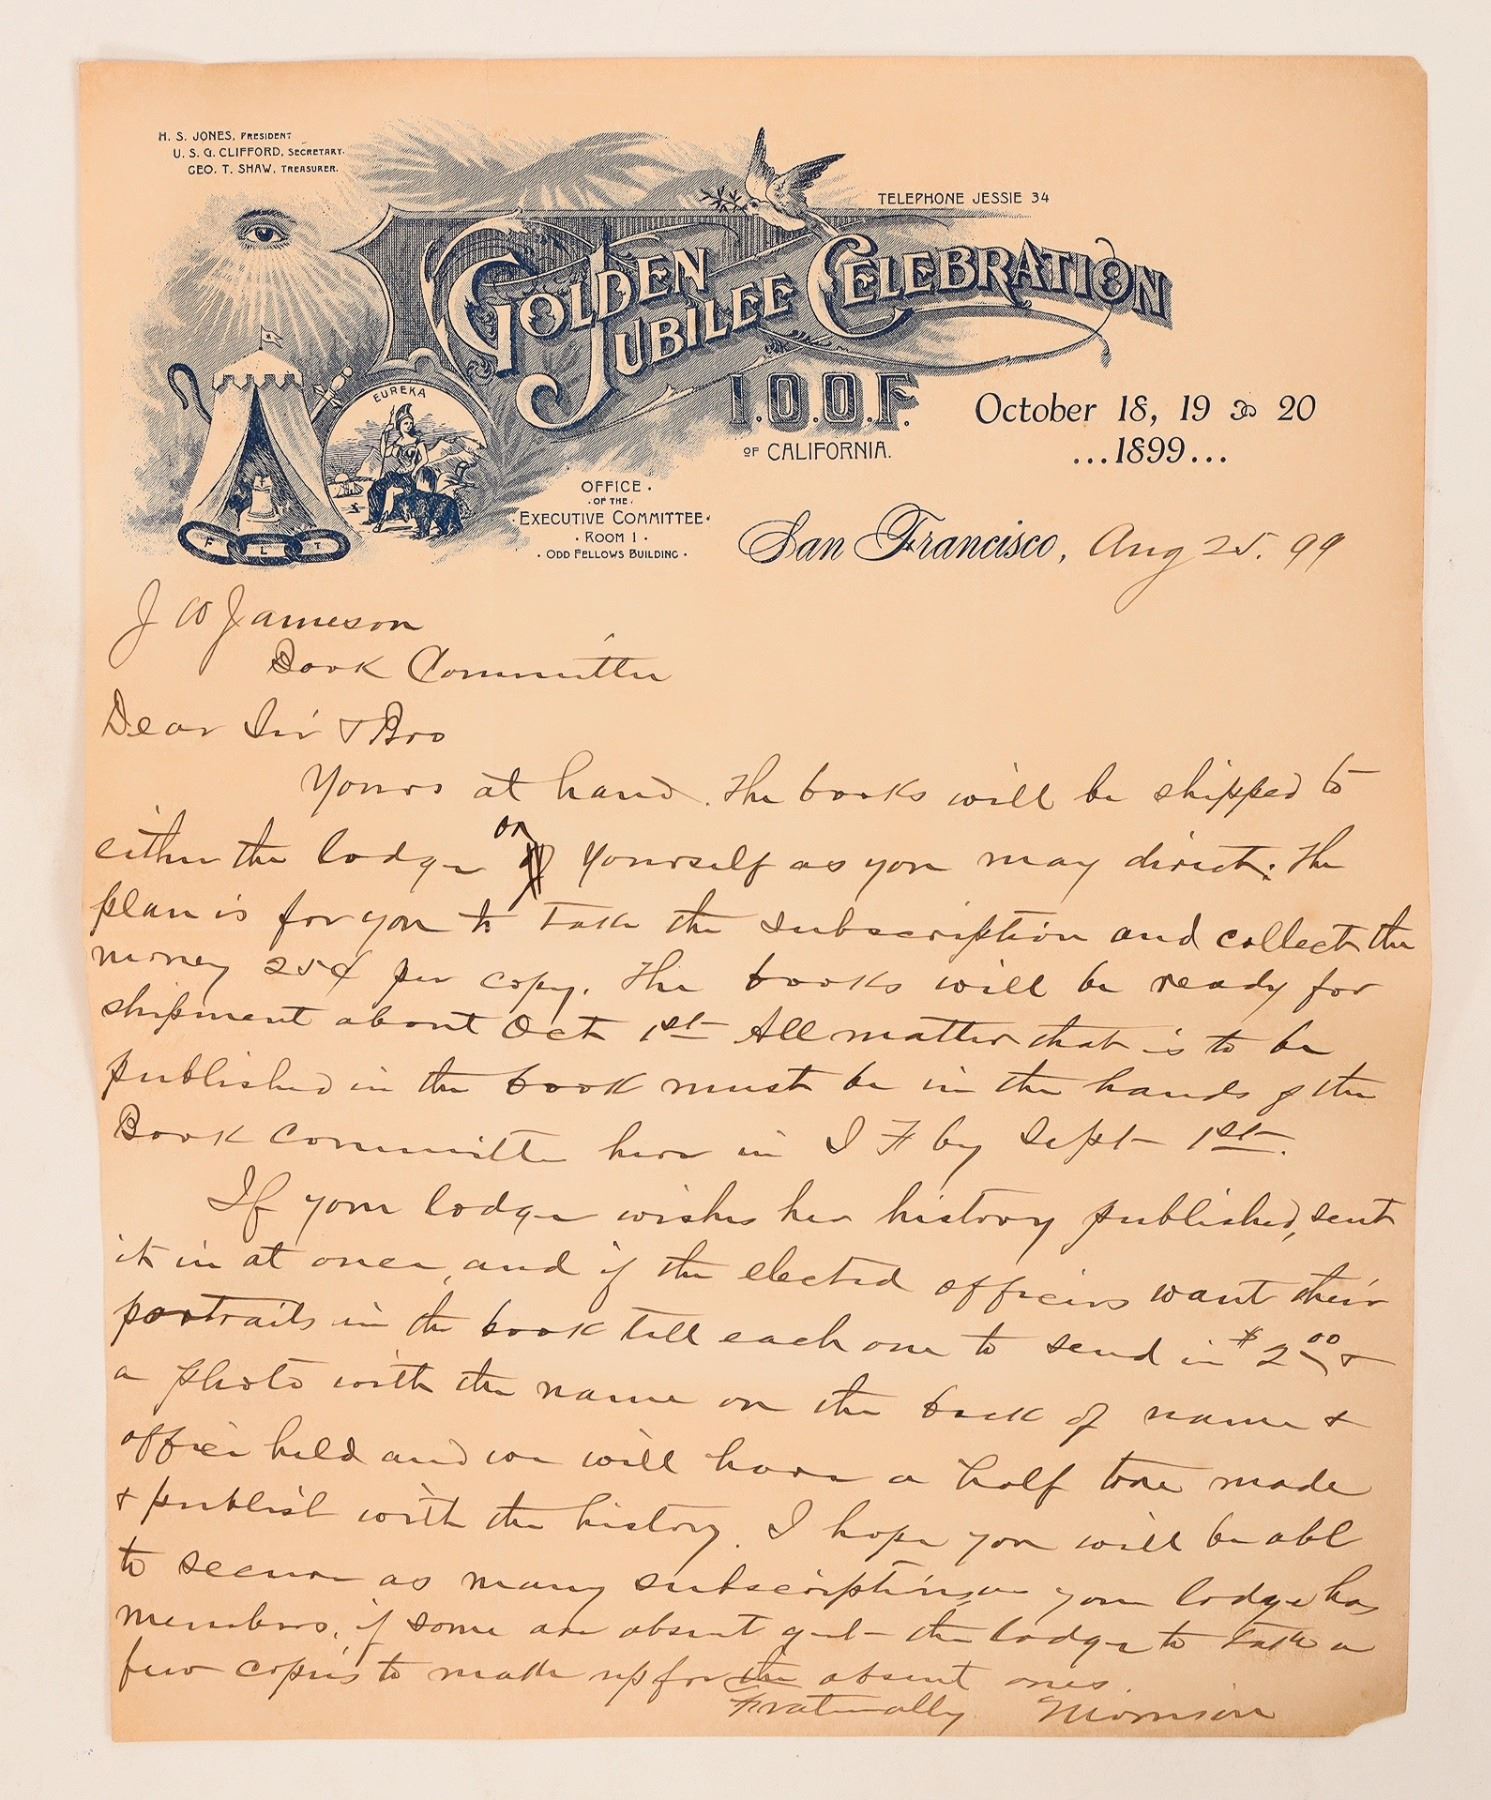 H. S. JONES, PRESIDENT
U. S. G. CLIFFORD, SECRETARY.
GEO. T. SHAW, TREASURER.
TELEPHONE JESSIE 34
GOLDEN
JUBILEE CELEBRATION
I.O.O.F.
OF CALIFORNIA.
October 18, 19 & 20
...1899...
EUREKA
F L T
OFFICE
OF THE
EXECUTIVE COMMITTEE
ROOM 1
ODD FELLOWS BUILDING
San Francisco, Aug 25. 99
J W Jameson
Book Committee
Dear Sir & Bro
Yours at hand. The books will be shipped to
either the lodge or yourself as you may direct. The
plan is for you to take the subscription and collect the
money 25¢ per copy. The books will be ready for
shipment about Oct 1st All matter that is to be
published in the book must be in the hands of the
Book Committee here in S F by Sept 1st.
If your lodge wishes her history published, sent
it in at once, and if the elected officers want their
portraits in the book tell each one to send in $2.00 &
a photo with the name on the back of name &
office held and we will have a half tone made
& publish with the history. I hope you will be abl
to secure as many subscriptions as your lodge has
members, if some are absent get the lodge to take a
few copies to make up for the absent ones.
Fraternally Morrison